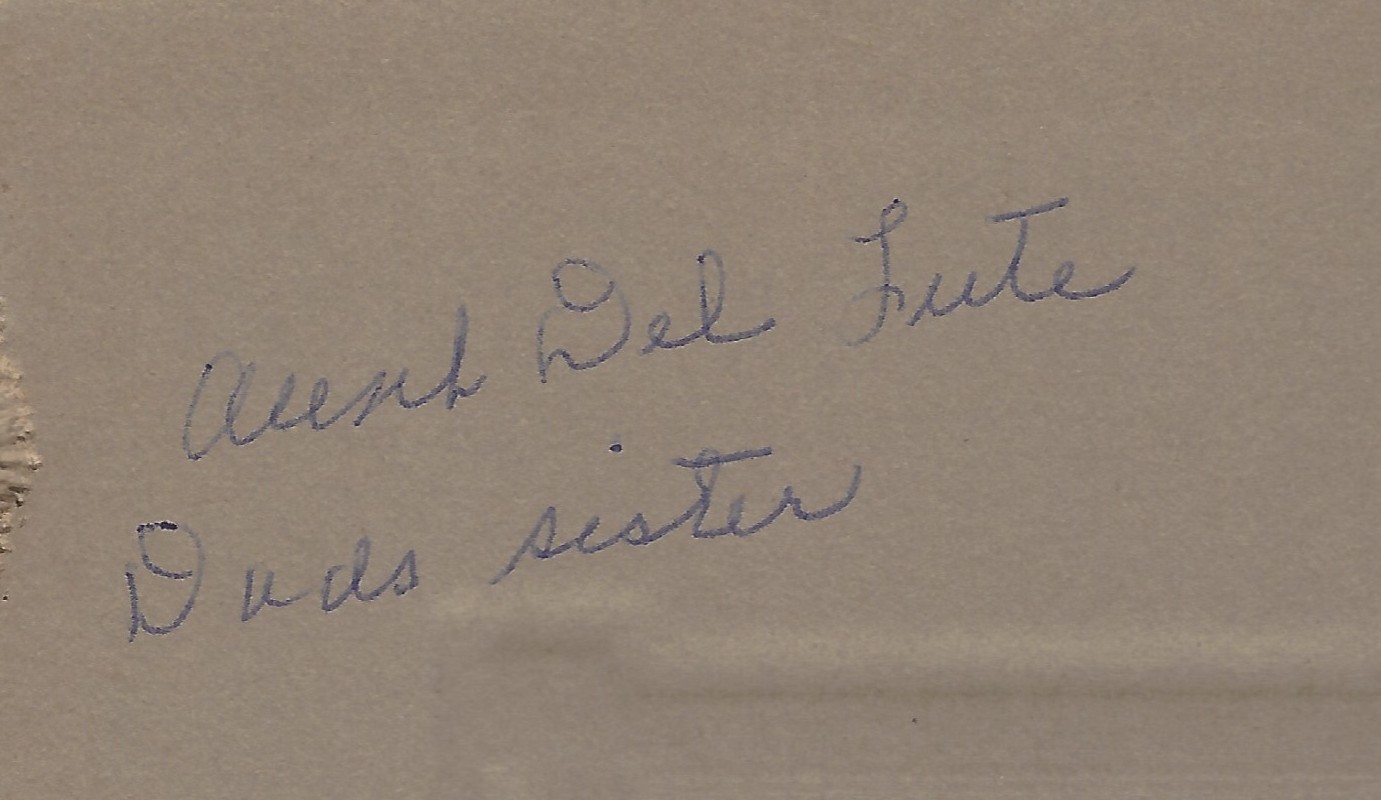 Aunt Del Fute
Dads sister